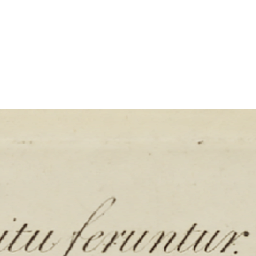 itu feruntur.